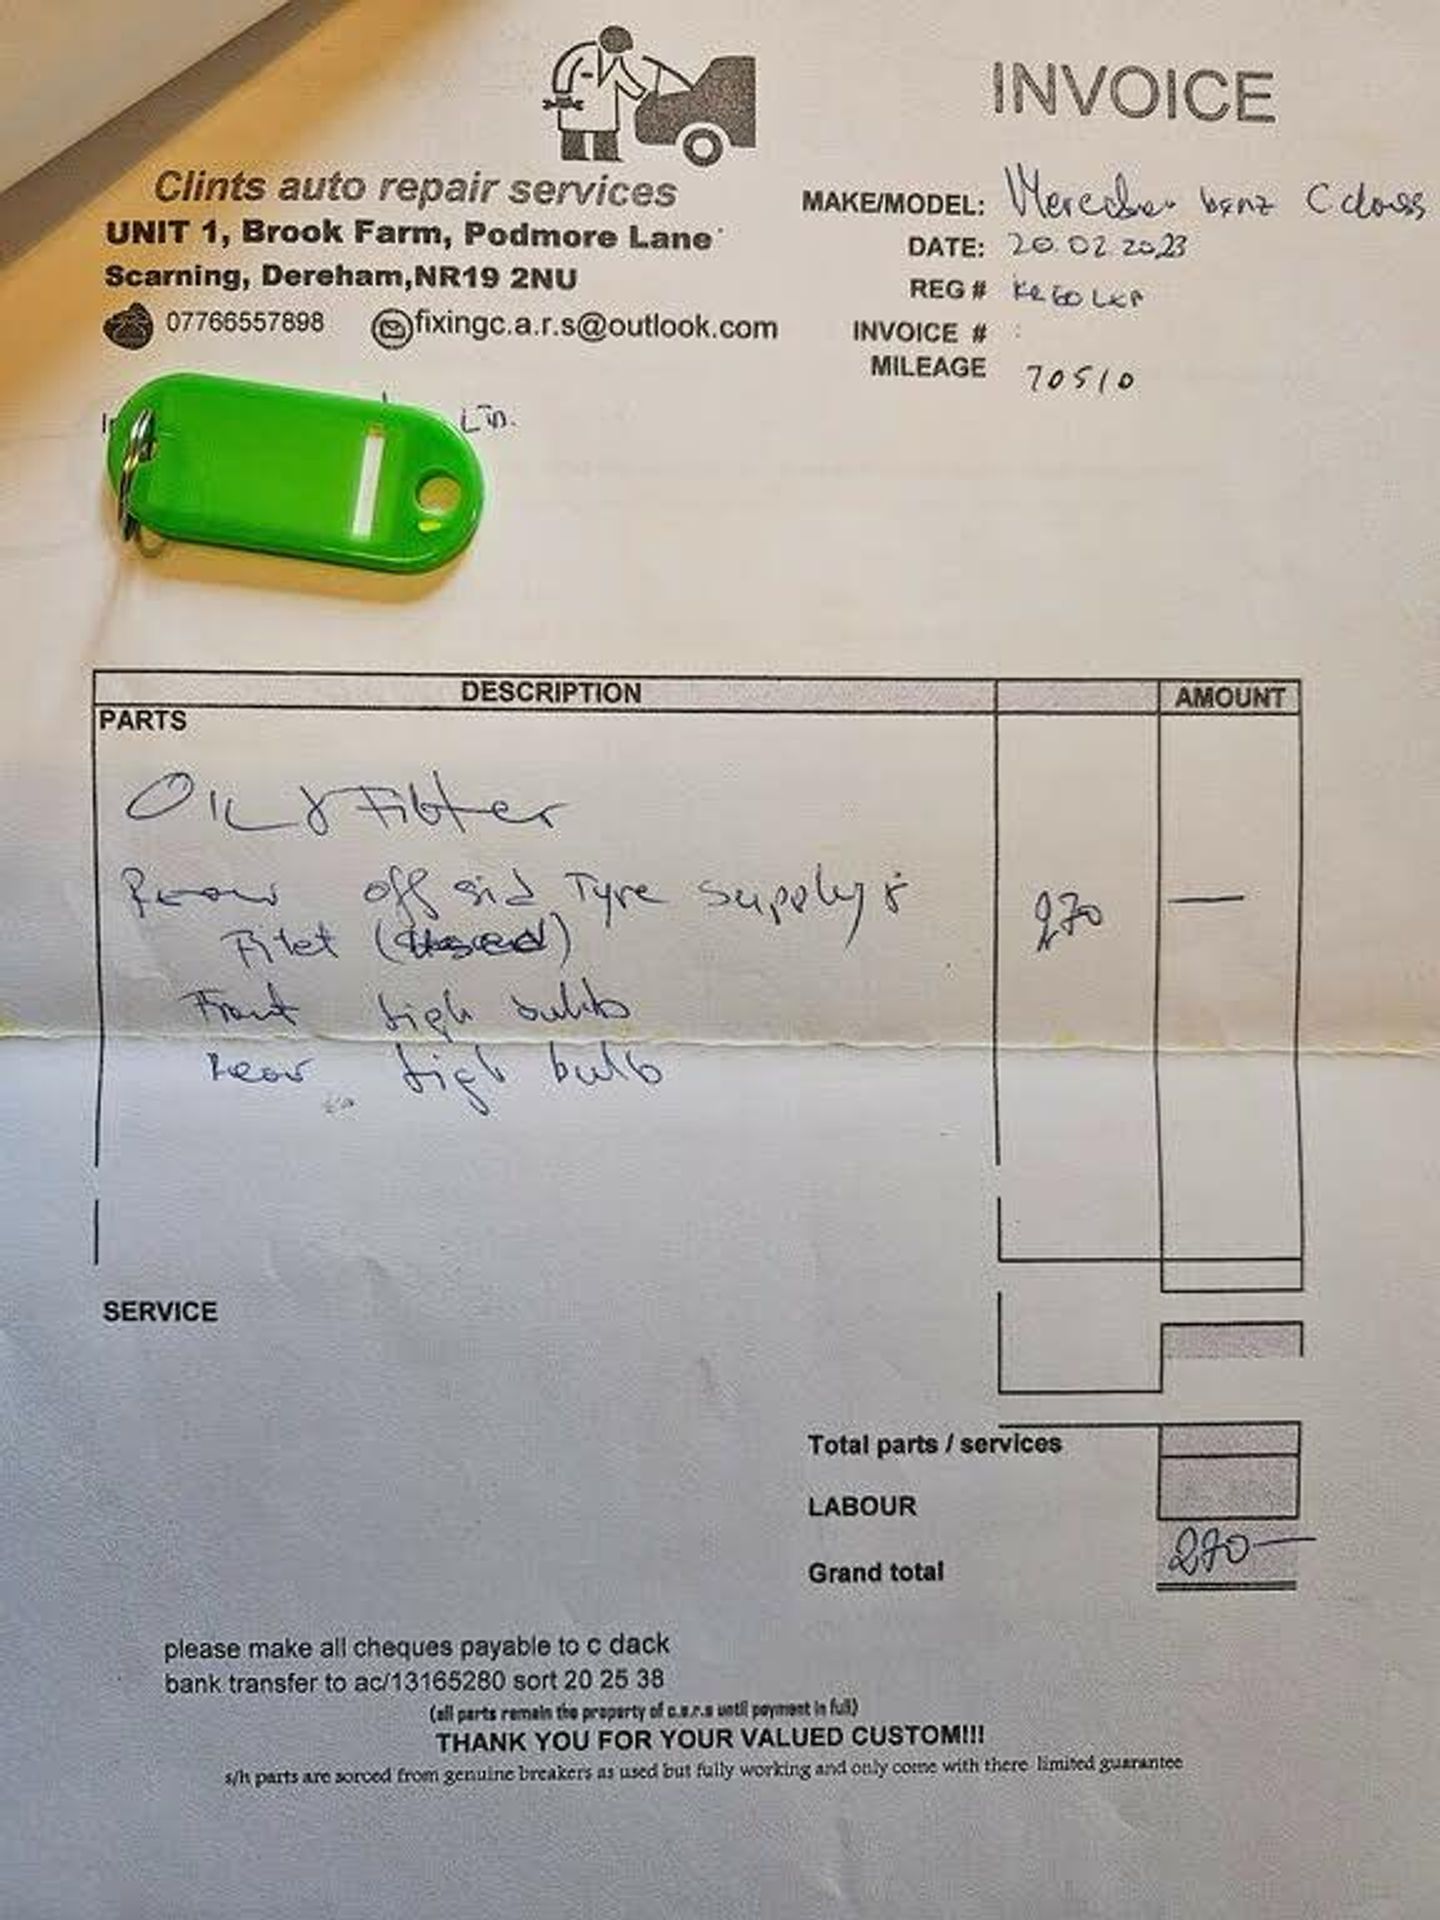 INVOICE
Clints auto repair services
UNIT 1, Brook Farm, Podmore Lane
Scarning, Dereham,NR19 2NU
07766557898 fixingc.a.r.s@outlook.com
MAKE/MODEL: Mercedes benz C class
DATE: 20.02.2023
REG #
INVOICE # :
MILEAGE 70510
LTD.
DESCRIPTION AMOUNT
PARTS
OIL & Filter
Rear off sid Tyre supply &
Fitet (used) 270 —
Front bulb
Rear bulb
SERVICE
Total parts / services
LABOUR
Grand total 270 —
please make all cheques payable to c dack
bank transfer to ac/13165280 sort 20 25 38
(all parts remain the property of c.a.r.s until payment in full)
THANK YOU FOR YOUR VALUED CUSTOM!!!
s/h parts are sorced from genuine breakers as used but fully working and only come with there limited guarantee